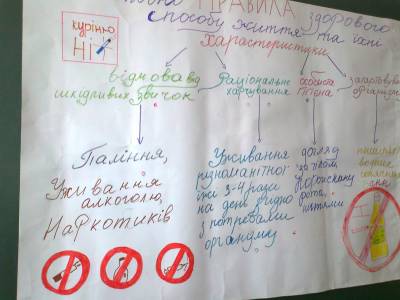 ПРАВИЛА здорового
способу життя та їхні
характеристики
курінню
НІ
відмова від
шкідливих звичок
Раціональне
харчування
особиста
гігієна
Паління,
Уживання
алкоголю,
Наркотиків
Уживання
різноманітної
їжі 3-4 рази
на день згідно
з потребами
організму
догляд
за тілом
порожниною
рота